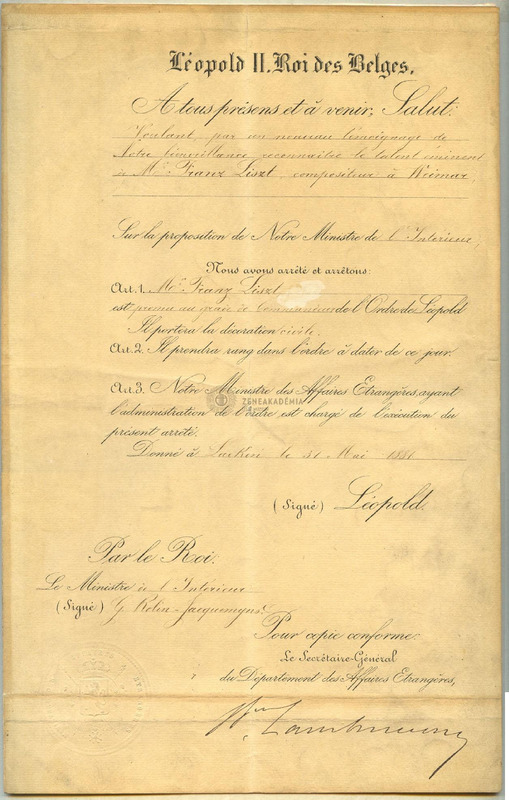 Léopold II. Roi des Belges,
A tous présens et à venir, Salut:
Voulant, par un nouveau témoignage de
Notre bienveillance, reconnaître le talent éminent
de Mr. Franz Liszt, compositeur à Weimar,
Sur la proposition de Notre Ministre de l'Intérieur,
Nous avons arrêté et arrêtons:
Art. 1. Mr. Franz Liszt
est promu au grade de Commandeur de l'Ordre de Léopold
Il portera la décoration civile.
Art. 2. Il prendra rang dans l'ordre à dater de ce jour.
Art. 3. Notre Ministre des Affaires Etrangères, ayant
ZENEAKADÉMIA
l'administration de l'ordre est chargé de l'exécution du
présent arrêté.
Donné à Laeken le 31 Mai 1881
(Signé) Léopold.
Par le Roi:
Le Ministre de l'Intérieur
(Signé) G. Rolin-Jaequemyns.
Pour copie conforme:
Le Secrétaire-Général
du Département des Affaires Etrangères,